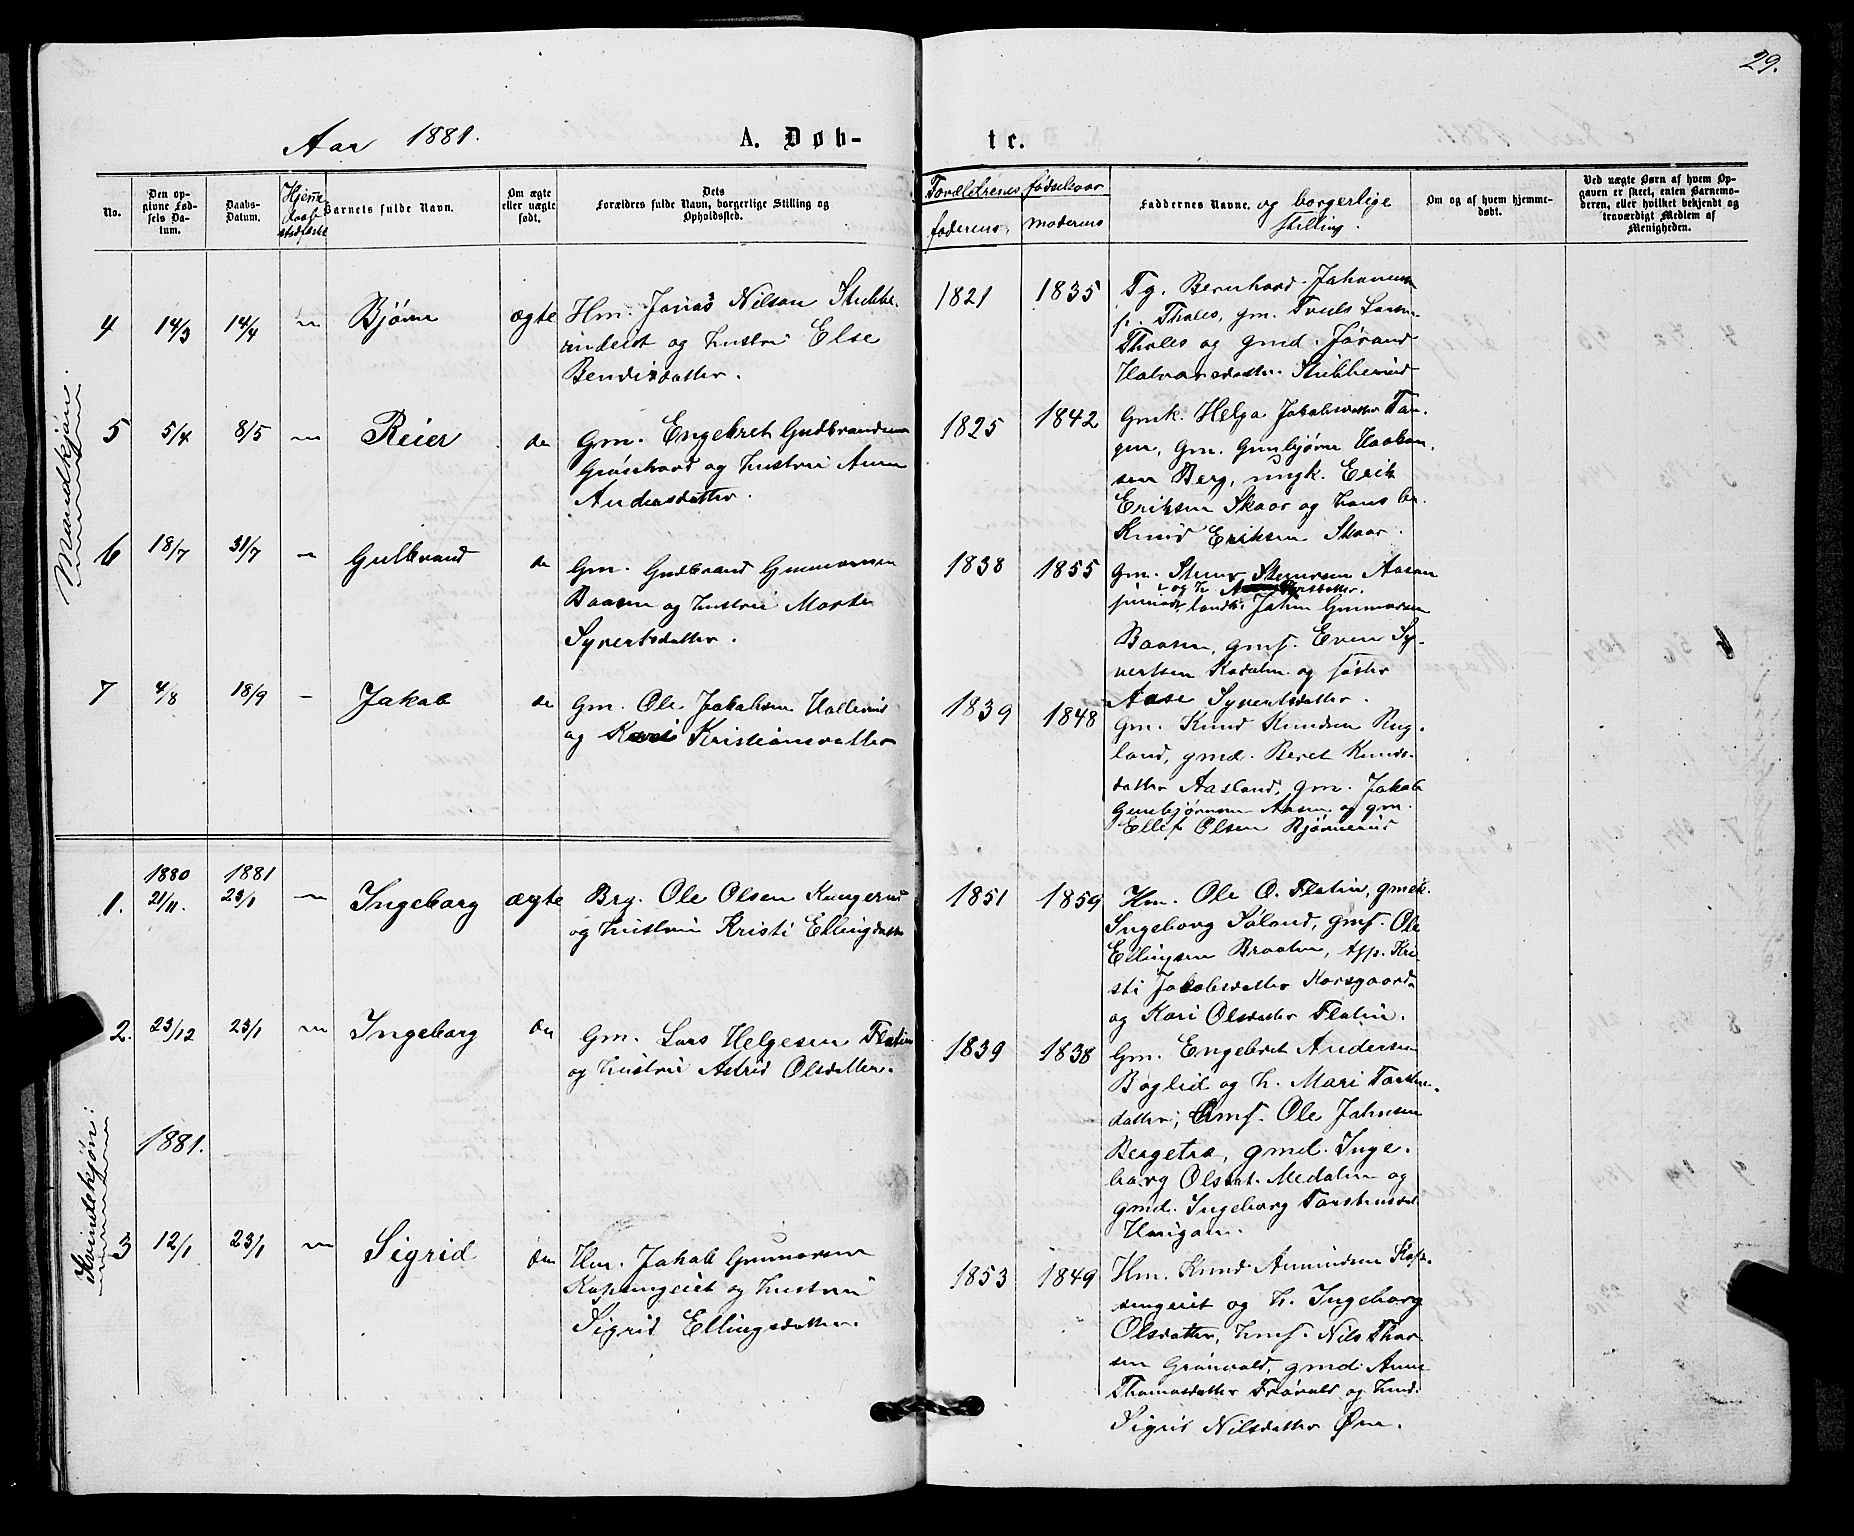 29.
Aar 1881.
A. Døb-
te.
No.
Den opgivne Fødsels Datum.
Daabs-Datum.
Hjemmedøbt
Barnets fulde Navn.
Om ægte eller uægte født.
Dets Forældres fulde Navn, borgerlige Stilling og Opholdssted.
Forældrenes fødselsaar
faderens, moderens
Faddernes Navne, og borgerlige stilling.
Om og af hvem hjemmedøbt.
Ved uægte Børn af hvem Opgaven er skeet, enten Barnemoderen, eller hvilket bekjendt og troværdigt Medlem af Menigheden.
Mandkjøn.
4 14/3 14/4 Bjørn ægte
Hm. Jonas Nilsen Stubbe-
rudeiet og hustru Else
Bendixdatter.
1821 1835
Tg. Bernhard Johannes
p. Tholes, gm. Truls Larsen
Tholes og gmd. Jørand
Halvorsdatter Stubberud
5 5/4 8/5 Reier do
Gm. Engebret Gudbrandsen
Grønhovd og hustru Anne
Andersdatter.
1825 1842
Gmk. Helga Jakobsdatter Tan-
gen, Gm. Gunbjørn Haakon-
sen Berg, ungk. Erik
Eriksen Skaar og hans br.
Knud Eriksen Skaar.
6 18/7 31/7 Gulbrand do
Gm. Gudbrand Gunnarsen
Baasen og hustru Marte
Syvertsdatter.
1838 1855
Gm. Stener Stenersen Aasan
og h.
Johan Gunnarsen
Baasen, gmf. Even Sy-
vertsen Kodalen og søster
Aase Syvertsdatter.
7 4/8 18/9 Jakob do
Gm. Ole Jakobsen Hallerud
og Kari Kristiansdatter
1839 1848
Gm. Knud Knudsen Rug-
land, gmd. Beret Knuds-
datter Aasland, gm. Jakob
Gunbjørnsen Aasen og gm.
Ellef Olsen Bjørnerud
Kvindekjøn:
1880 1881
1. 21/11. 23/1 Ingeborg ægte
Brg. Ole Olsen Kangerud
og hustru Kristi Ellingsdatter
1851 1859
Hm. Ole O. Flatin, gmek.
Ingeborg Søland, gmf. Ole
Ellingsen Braaten, tpp. Kri-
sti Jakobsdatter Korsgaarde
og Kari Olsdatter Flatin.
2. 23/12 23/1 Ingeborg do
Gm. Lars Helgesen Flatin
og hustru Astrid Olsdatter.
1839 1838
Gm. Engebret Andersen
Bøglid og h. Mari Torsten-
datter, Gmf. Ole Johnsen
Bergetra, gmd. Inge-
borg Olsdat. Medalen og
gmd. Ingeborg Torstensdat
1881.
3 12/1 23/1 Sigrid do
Hm. Jakob Gunnarsen
Kopsengeiet og hustru
Sigrid Ellingsdatter.
1853 1849
Hm. Knud Amundsen Kop-
sengeiet og h. Ingeborg
Olsdatter, hmf. Nils Thor-
sen Grønvold, gmd. Anne
Thomasdatter Frøvold og hmd.
Sigrid Nilsdatter Øen.